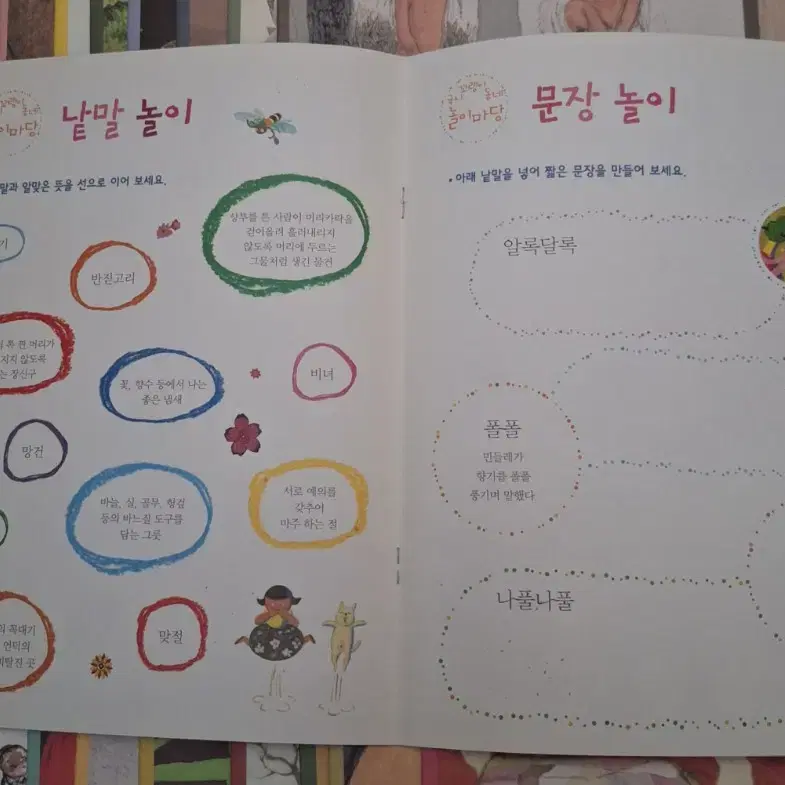 놀이마당
낱말 놀이
말과 알맞은 뜻을 선으로 이어 보세요.
기
반짇고리
상투를 튼 사람이 머리카락을
걷어올려 흘러내리지
않도록 머리에 두르는
그물처럼 생긴 물건
쪽 찐 머리가
지지 않도록
는 장신구
꽃, 향수 등에서 나는
좋은 냄새
비녀
망건
바늘, 실, 골무, 헝겊
등의 바느질 도구를
담는 그릇
서로 예의를
갖추어
마주 하는 절
의 꼭대기
언덕의
비탈진 곳
맞절
놀이마당
문장 놀이
아래 낱말을 넣어 짧은 문장을 만들어 보세요.
알록달록
폴폴
민들레가
향기를 폴폴
풍기며 말했다
나풀나풀